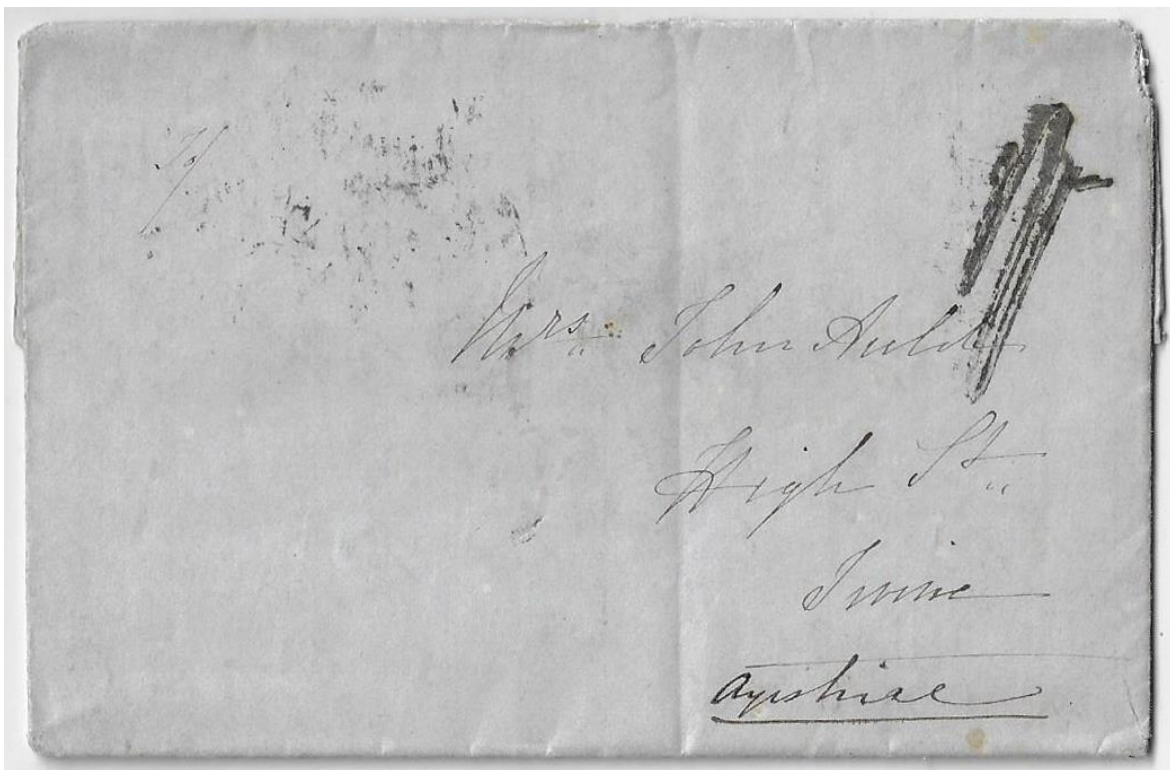 Mrs John Auld
High St
Irvine
Ayrshire